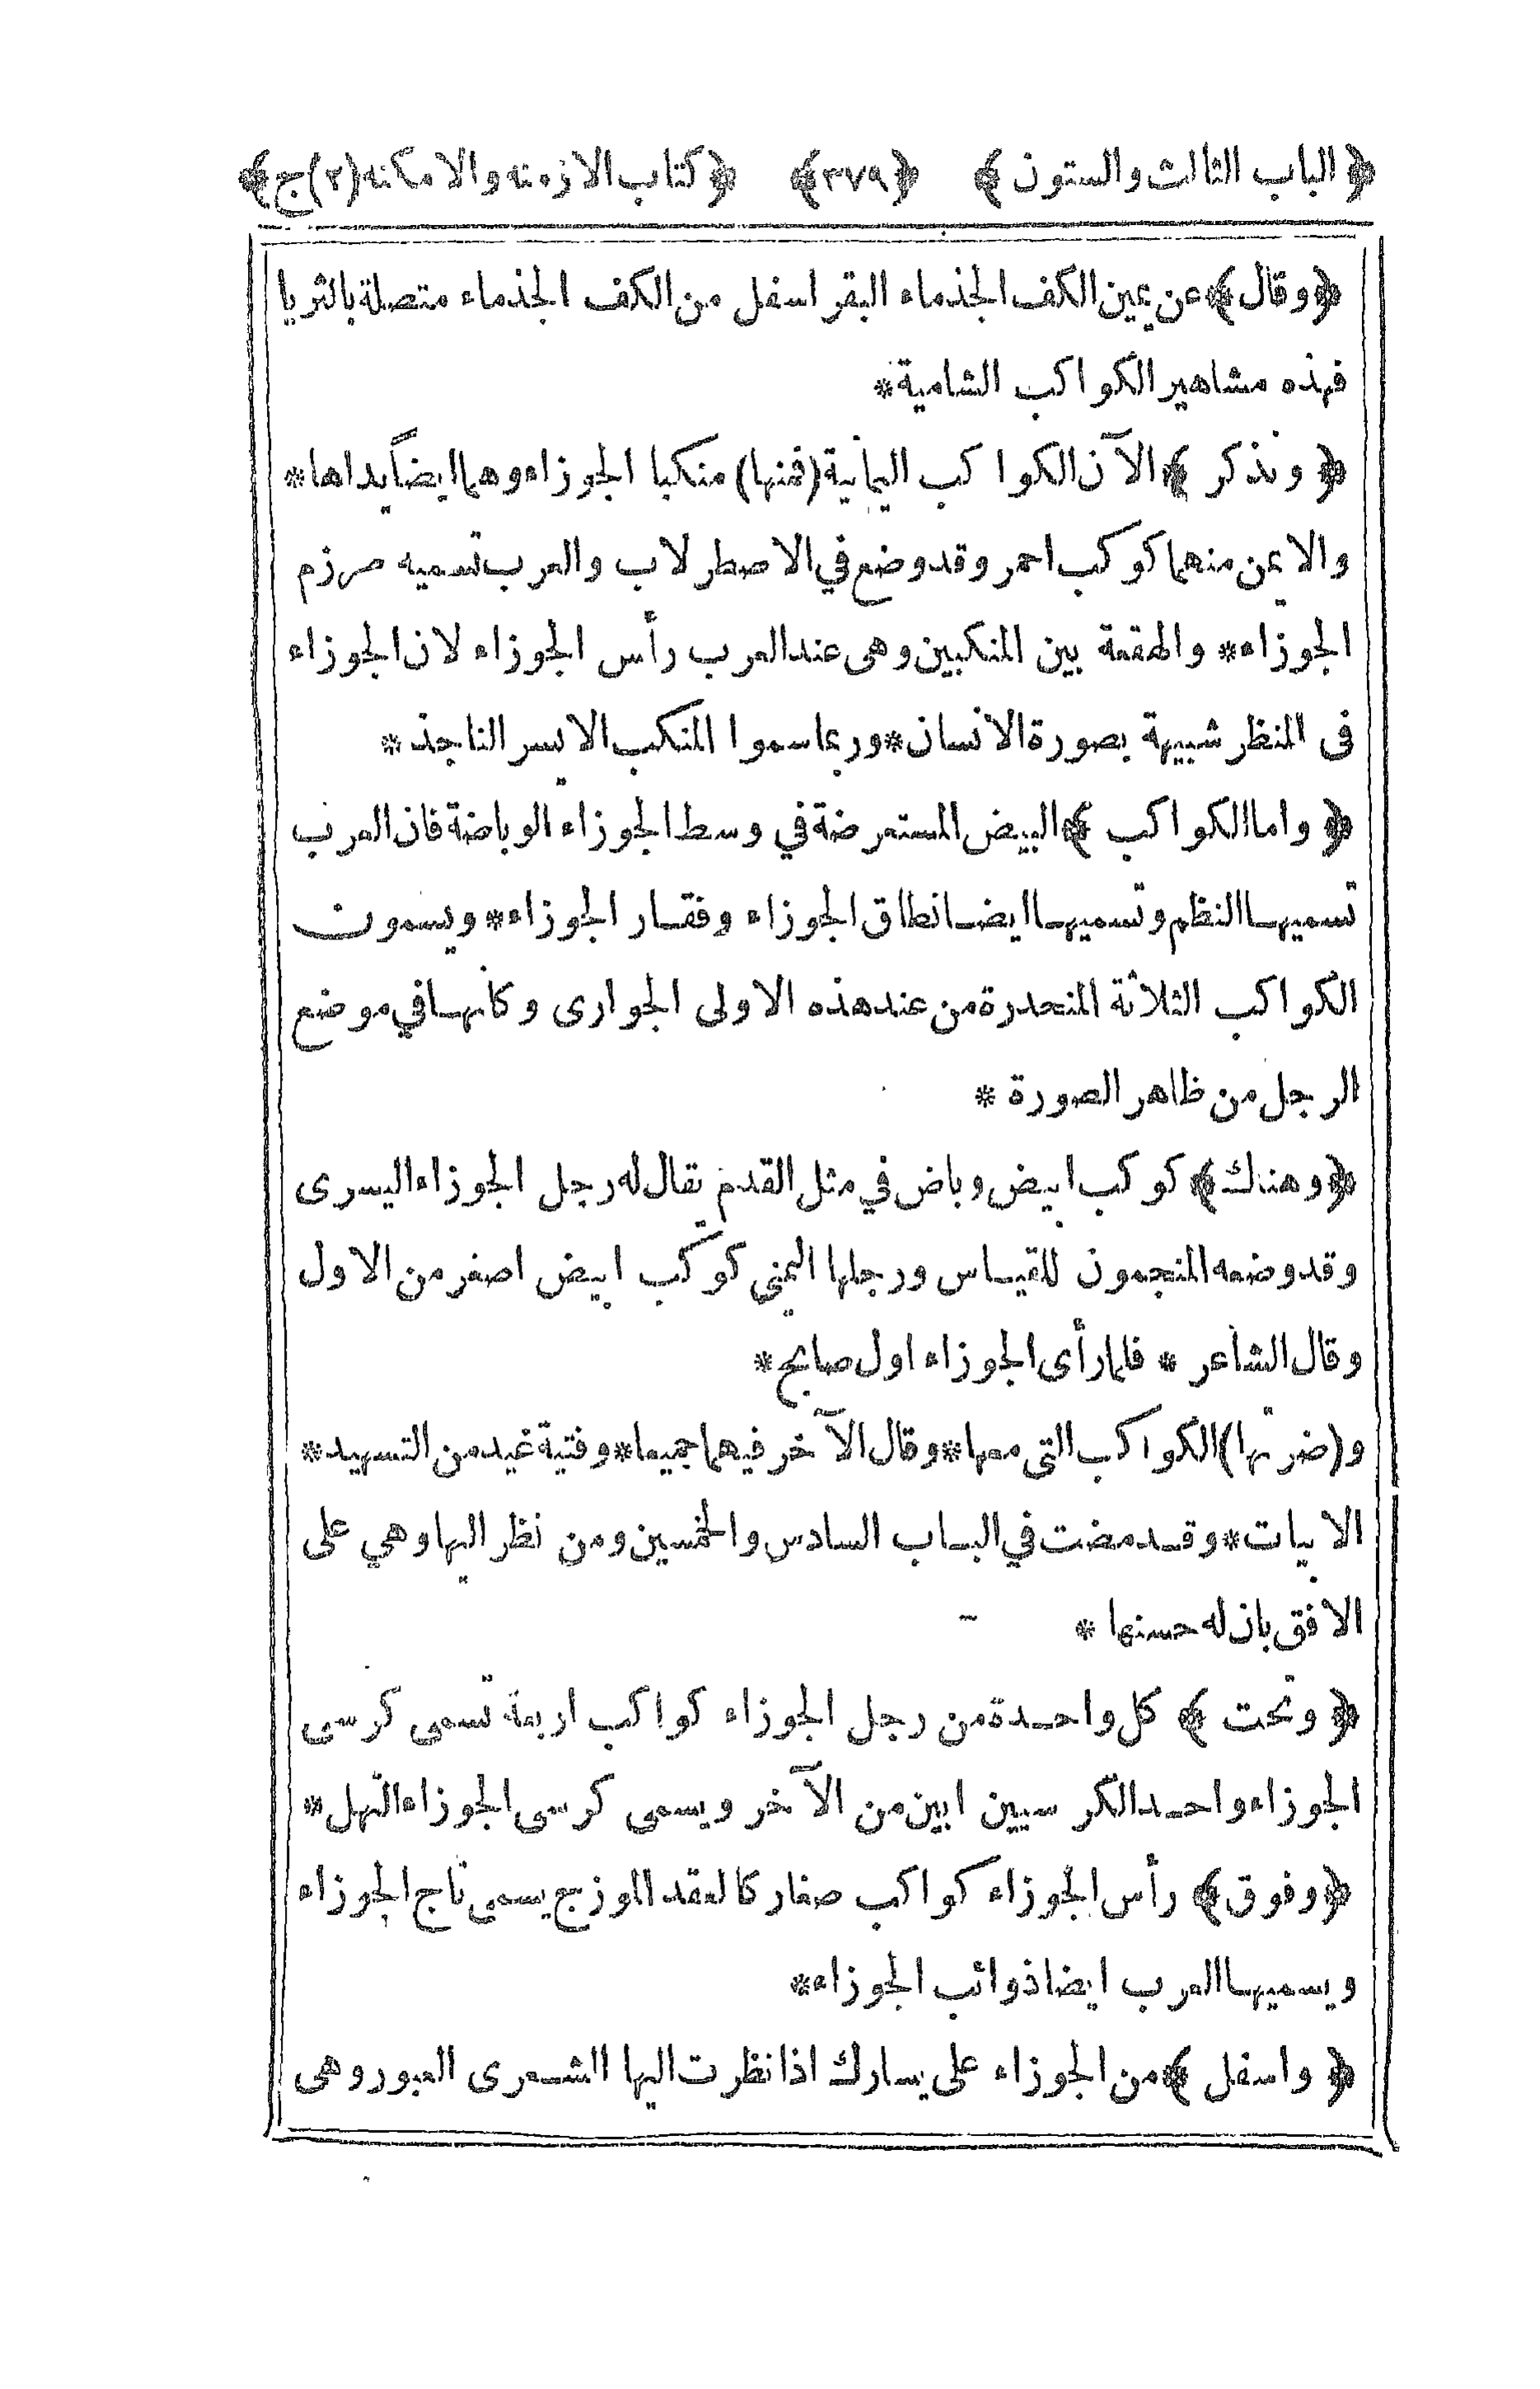 ﴿ الباب الثالث والستون ﴾ ﴿٣٧٩﴾ ﴿ كتاب الازمنه والامكنه (٢) ج ﴾
﴿وقال﴾ عن يمين الكف الجذماء البقر اسفل من الكف الجذماء متصلة بالثريا
فهذه مشاهير الكواكب الشامية*
﴿ ونذكر ﴾ الآن الكواكب اليمانية (فمنها) منكبا الجوزاء وهما ايضاً يداها*
والايمن منهما كوكب احمر وقد وضع في الاصطرلاب والعرب تسميه مرزم
الجوزاء* والهقعة بين المنكبين وهى عند العرب رأس الجوزاء لان الجوزاء
فى المنظر شبيهة بصورة الانسان* وربما سموا المنكب الايسر الناجذ*
﴿ واما الكواكب ﴾ البيض المستعرضة في وسط الجوزاء الوباضة فان العرب
تسميها النظم وتسميها ايضا نطاق الجوزاء وفقار الجوزاء* ويسمون
الكواكب الثلاثة المنحدرة من عند هذه الاولى الجوارى وكأنها في موضع
الرجل من ظاهر الصورة *
﴿وهناك﴾ كوكب ابيض وباض في مثل القدم يقال له رجل الجوزاء اليسرى
وقد وضعه المنجمون للقياس ورجلها اليمنى كوكب ابيض اصغر من الاول
وقال الشاعر * فلما رأى الجوزاء اول صابح*
و(ضرتها) الكواكب التى معها* وقال الآخر فيهما جميعا* وفتية غيد من التسهيد*
الابيات* وقد مضت في الباب السادس والخمسين ومن نظر اليها وهي على
الافق بان له حسنها *
﴿ وتحت ﴾ كل واحدة من رجل الجوزاء كواكب اربعة تسمى كرسى
الجوزاء واحد الكرسيين ابين من الآخر ويسمى كرسى الجوزاء النهل*
﴿وفوق﴾ رأس الجوزاء كواكب صغار كالعقد الموزج يسمى تاج الجوزاء
ويسميها العرب ايضا ذوائب الجوزاء*
﴿ واسفل ﴾ من الجوزاء على يسارك اذا نظرت اليها الشعرى العبور وهى